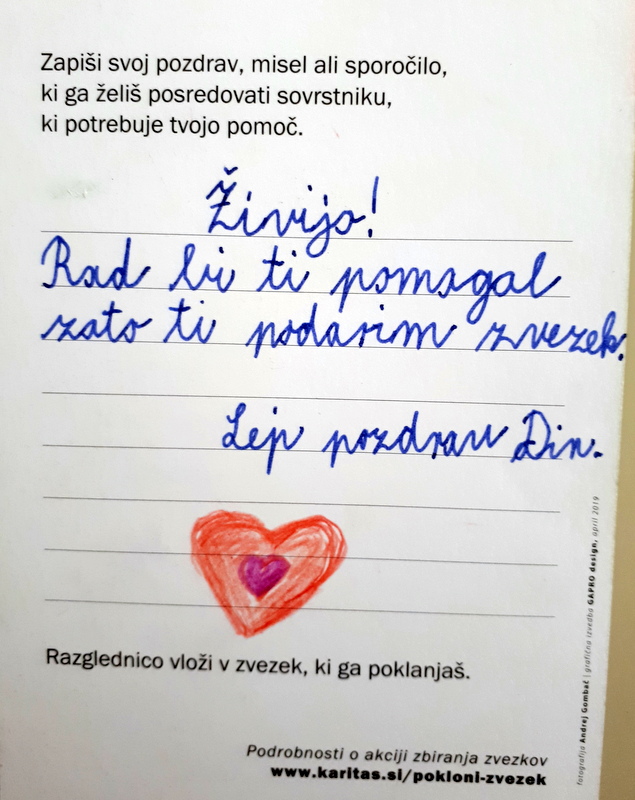 Zapiši svoj pozdrav, misel ali sporočilo,
ki ga želiš posredovati sovrstniku,
ki potrebuje tvojo pomoč.
Živijo!
Rad bi ti pomagal
zato ti podarim zvezek.
Lep pozdrav Din.
Razglednico vloži v zvezek, ki ga poklanjaš.
Podrobnosti o akciji zbiranja zvezkov
www.karitas.si/pokloni-zvezek
fotografija Andrej Gombač | grafična izvedba GAPRO design, april 2019